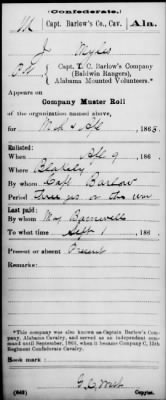 (Confederate.)
M Capt. Barlow's Co., Cav. Ala.
J Myles
Pvt, Capt. T. C. Barlow's Company
(Baldwin Rangers),
Alabama Mounted Volunteers.*
Appears on
Company Muster Roll
of the organization named above,
for Mch & Apl, 1863.
Enlisted:
When Apl 9, 186
Where Blakely
By whom Capt Barlow
Period three yrs or the war
Last paid:
By whom Maj Barnwell
To what time Sept 1, 186
Present or absent Present
Remarks:
*This company was also known as Captain Barlow's Com-
pany, Alabama Cavalry, and served as an independent com-
mand until September, 1863, when it became Company C, 15th
Regiment Confederate Cavalry.
Book mark:
(642)
Copyist.